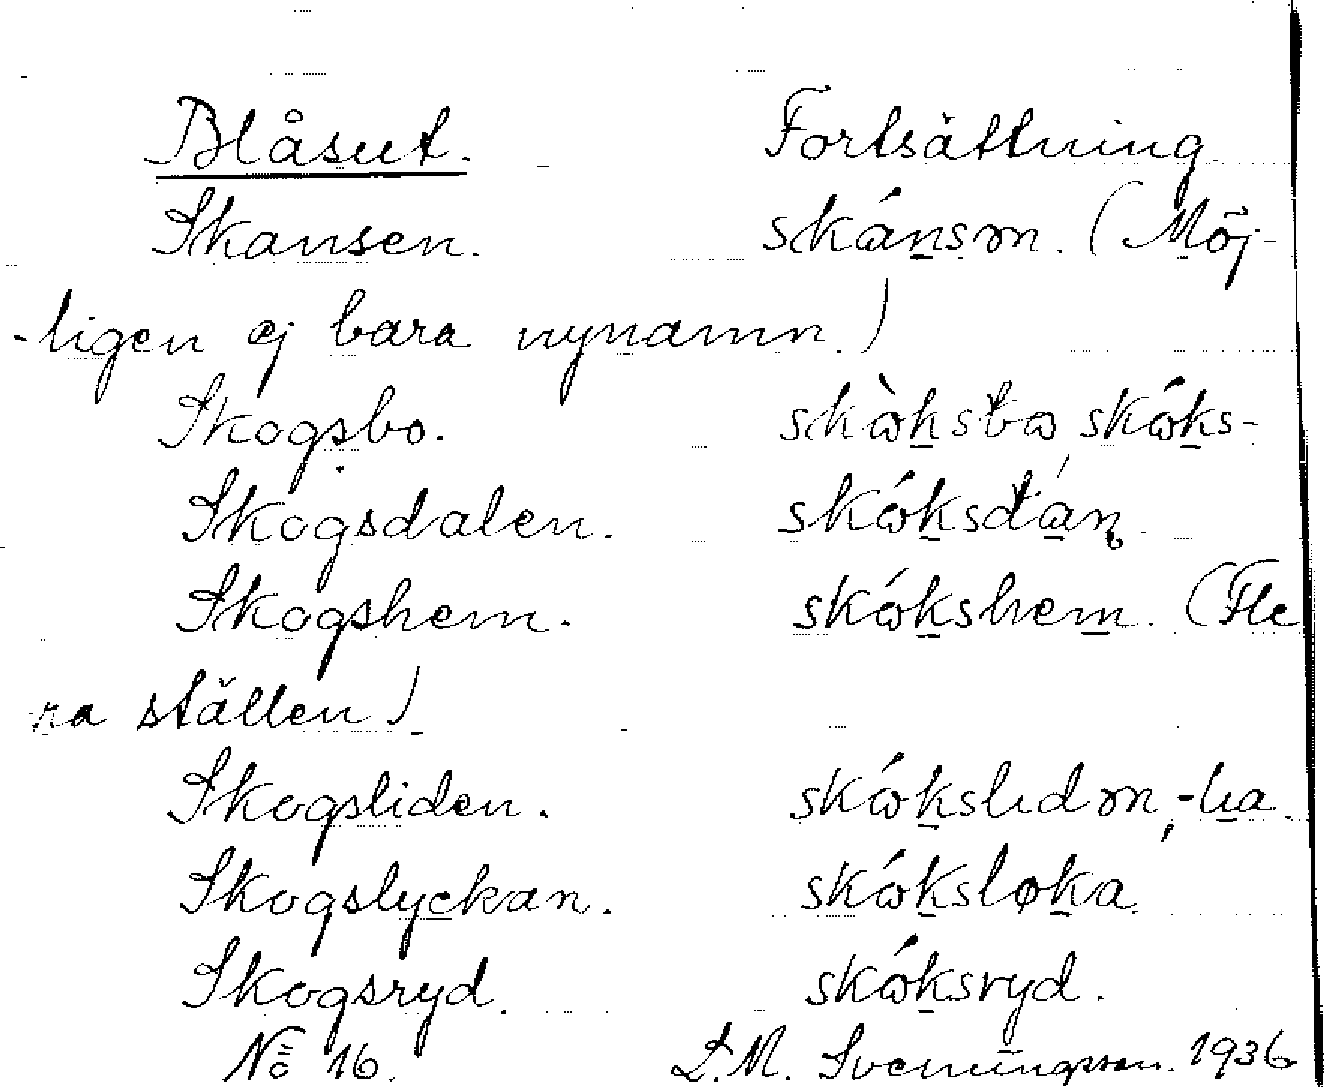 Blåsut. Fortsättning
Skansen. skánsən. (Möj-
-ligen ej bara nynamn.)
Skogsbo. skὼksbω, skώks-
Skogsdalen. skώksdάɳ
Skogshem. skώkshem. (Fle
ra ställen)
Skogsliden. skώkslıdən, -lıa.
Skogslyckan. skώksløka.
Skogsryd. skώksryd.
No 16. L.M. Svenungsson. 1936